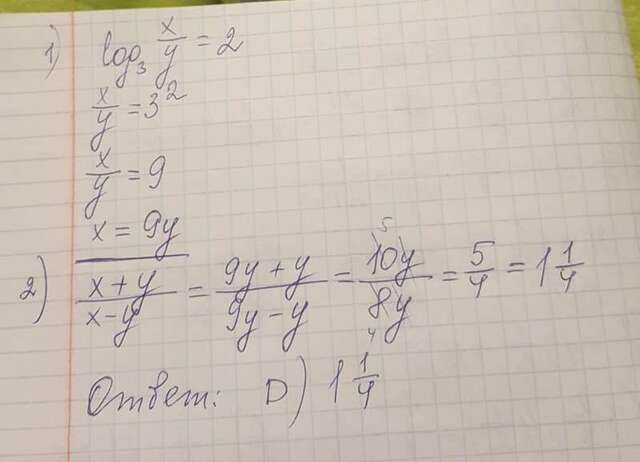 1) log₃ x/y = 2
x/y = 3²
x/y = 9
x = 9y
2) x+y/x-y = 9y+y/9y-y = 10y/8y = 5/4 = 1 1/4
5
4
Ответ: D) 1 1/4